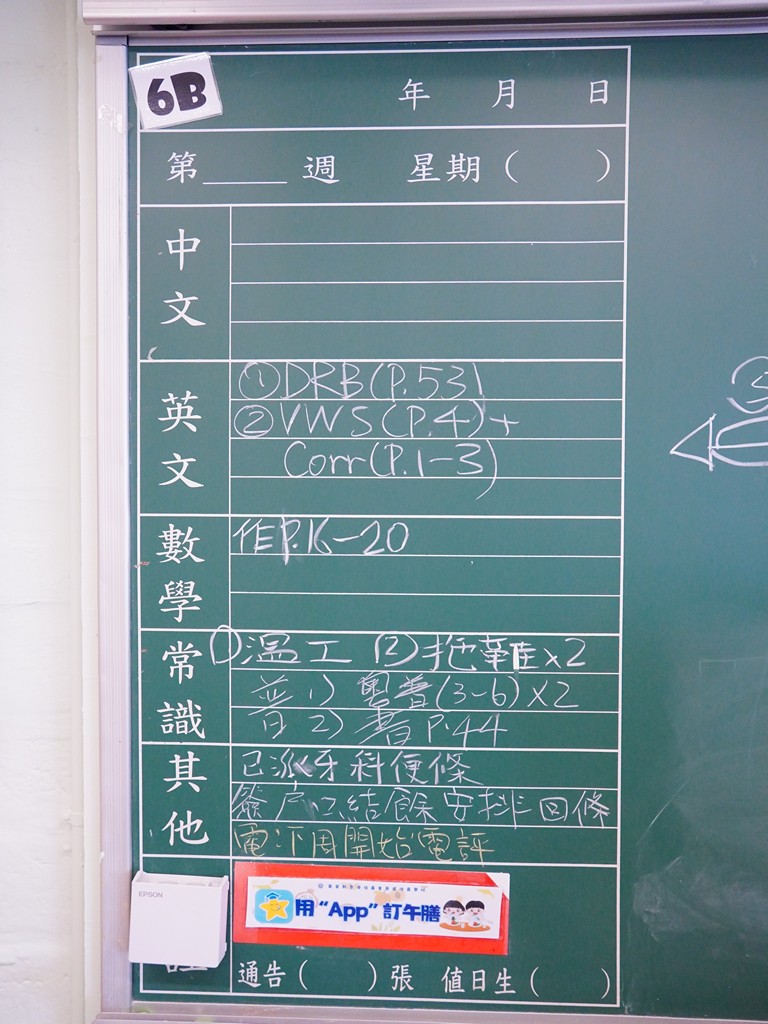 6B
年 月 日
第____週 星期( )
中文
英文
①DRB(P.53)
②VWS(P.4)+
Corr(P.1-3)
數學
作P.16-20
常識
①溫工 ②拖難x2
普 1) 粵普(3-6)x2
2) 書P.44
其他
已派牙科便條
簽戶口結餘安排回條
電:下周開始電評
EPSON
用“App”訂午膳
通告( )張 值日生( )